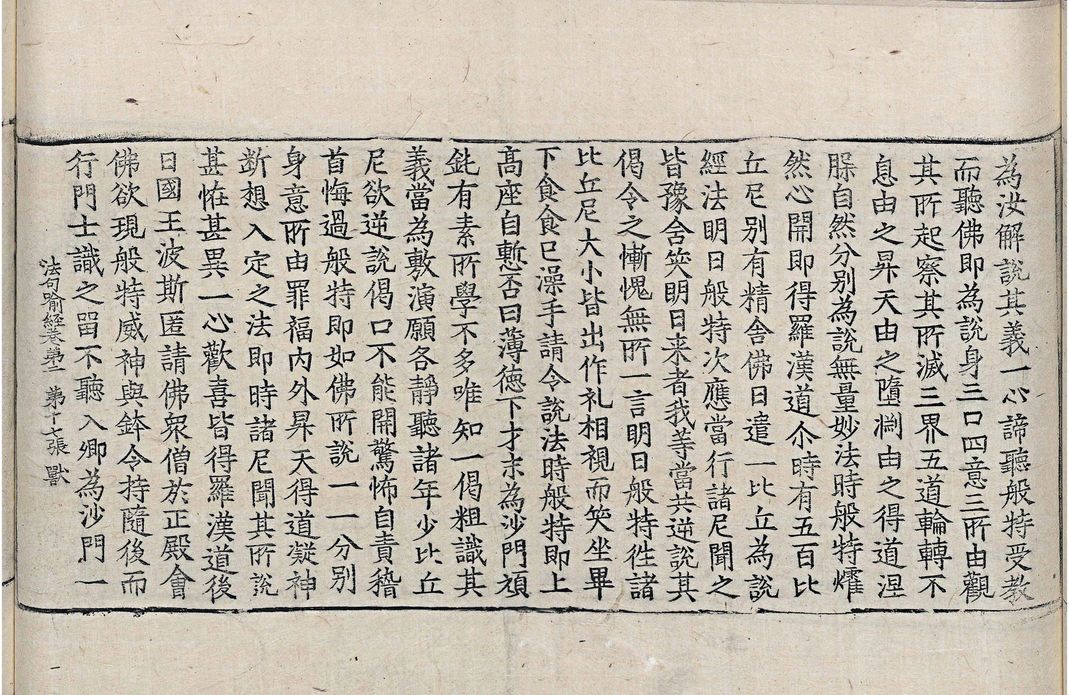 為汝解說其義一心諦聽般特受教
而聽佛即為說身三口四意三所由觀
其所起察其所滅三界五道輪轉不
息由之昇天由之墮淵由之得道涅
脲自然分別為說無量妙法時般特㸌
然心開即得羅漢道尒時有五百比
丘尼別有精舍佛日遣一比丘為說
經法明日般特次應當行諸尼聞之
皆豫含笑明日来者我等當共逆說其
偈令之慚愧無所一言明日般特徃諸
比丘尼大小皆出作礼相視而笑坐畢
下食食已澡手請令說法時般特即上
高座自慙否曰薄德下才末為沙門頑
鈍有素所學不多唯知一偈粗識其
義當為敷演願各靜聽諸年少比丘
尼欲逆說偈口不能開驚怖自責稽
首悔過般特即如佛所說一一分別
身意所由罪福內外昇天得道凝神
断想入定之法即時諸尼聞其所說
甚恠甚異一心歡喜皆得羅漢道後
日國王波斯匿請佛衆僧於正殿會
佛欲現般特威神與鉢令持隨後而
行門士識之留不聽入卿為沙門一
法句喻經卷第二 第十七張 獸